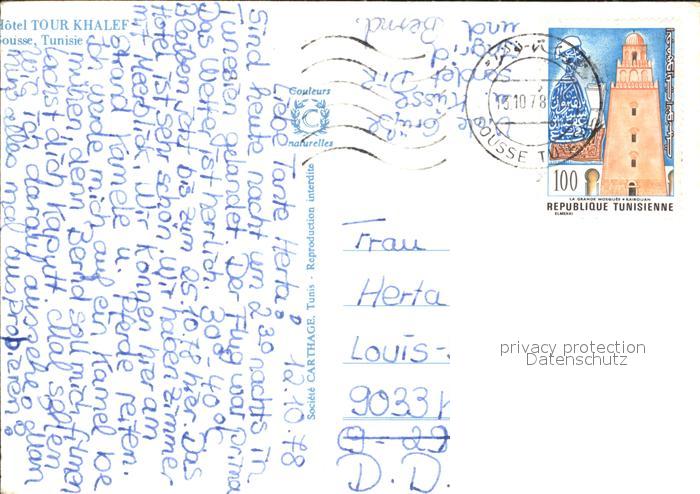 Hôtel TOUR KHALEF
Sousse, Tunisie
Couleurs
naturelles
Société CARTHAGE, Tunis - Reproduction interdite
12.10.78
Liebe Tante Herta!
Sind heute nacht um 2³⁰ nachts in
Tunesien gelandet. Der Flug war prima
Das Wetter ist herrlich. 30-40°C
Bleiben jetzt bis zum 25.10.78 hier. Das
Hotel ist sehr schön. Wir haben Zimmer
mit Meerblick. Wir können hier am
Strand Kamele u. Pferde reiten.
Ich werde mich auf ein Kamel be
mühen, denn Bernd soll mich filmen
Lachst dich kaputt. Mal sehen
wie ich darauf aussehe. Man
muß alles mal ausprobieren!
Grüße
Küsse
sendet Dir
Ingrid
und Bernd.
13.10.78
SOUSSE
100
LA GRANDE MOSQUÉE • KAIROUAN
REPUBLIQUE TUNISIENNE
ELMEKKI
Frau
Herta
Louis-
90331
D.D.
privacy protection
Datenschutz